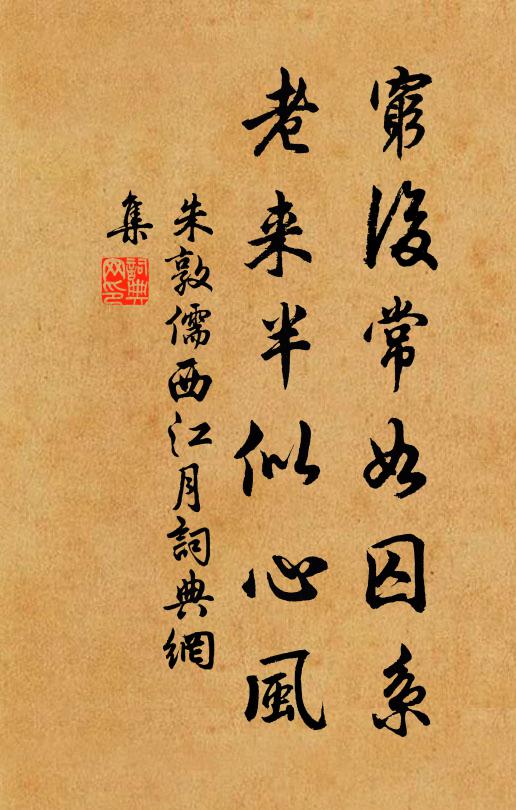 窮後常如囚系
老来半似心風
朱敦儒西江月詞典網
集
詞典网印